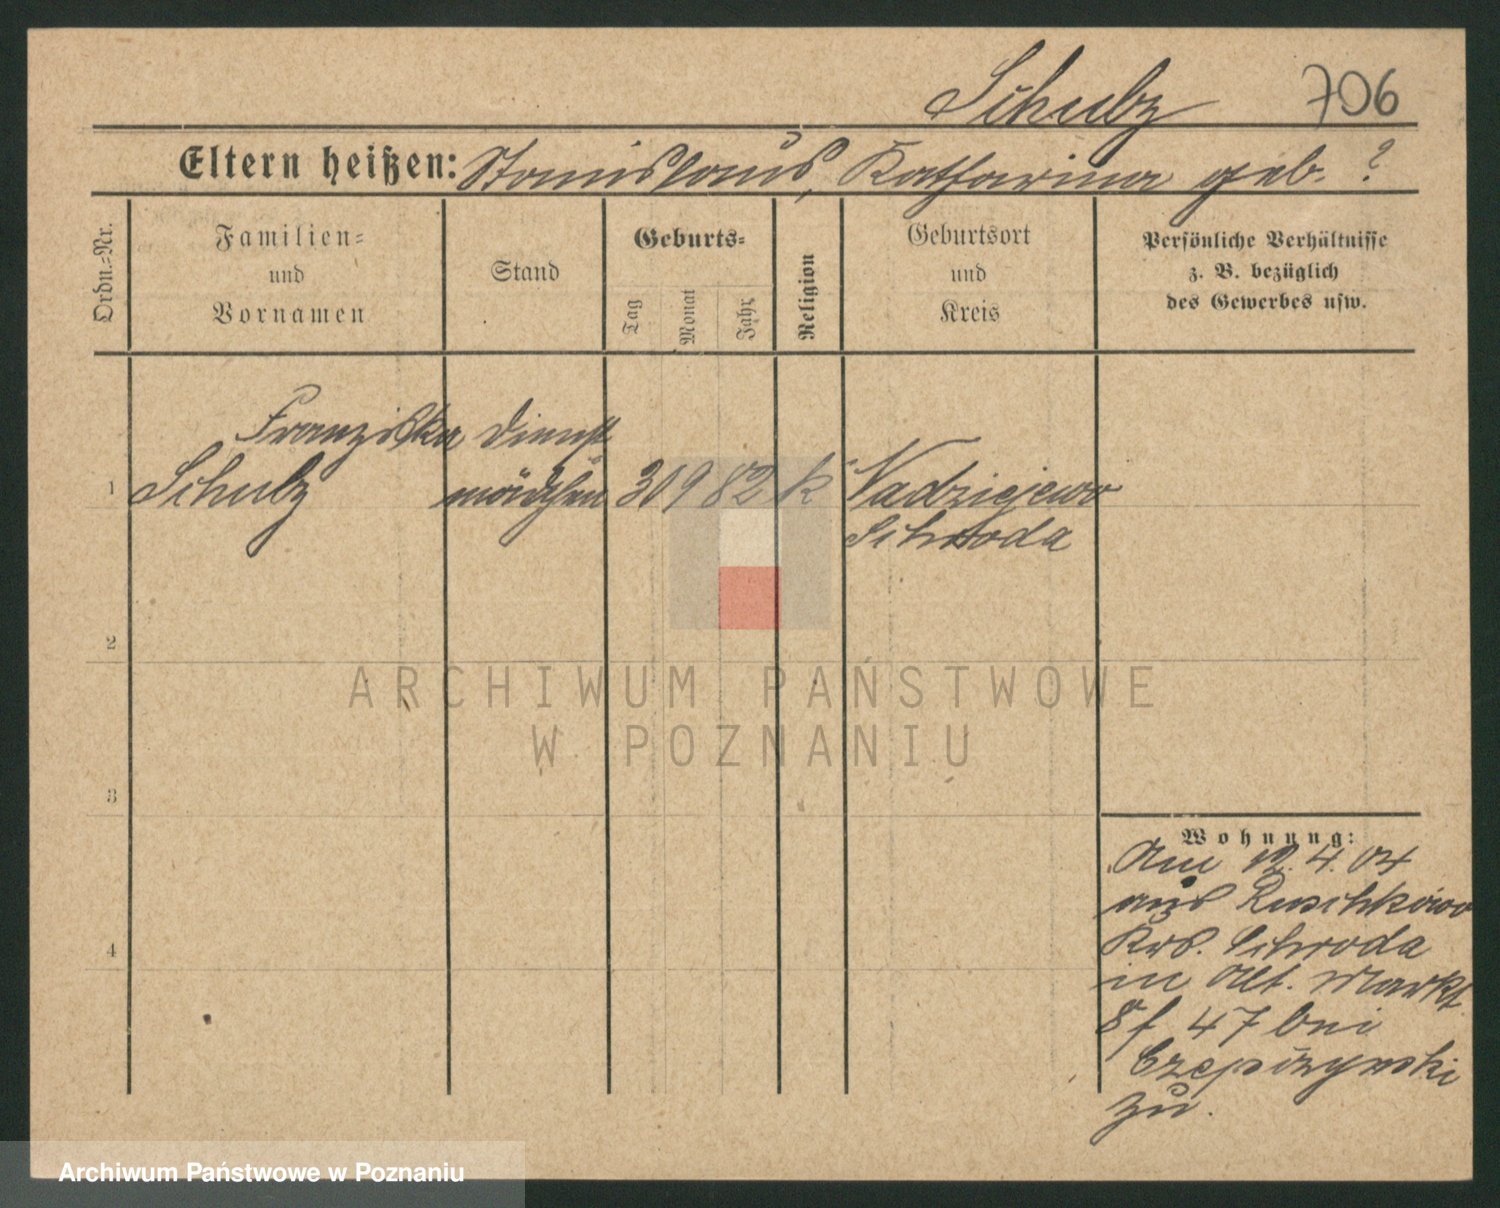 Schulz 706
Eltern heißen: Stanislaus, Katharina geb. ?
Ordn.-Nr.
Familien-
und
Vornamen
Stand
Geburts-
Tag
Monat
Jahr
Religion
Geburtsort
und
Kreis
Persönliche Verhältnisse
z. B. bezüglich
des Gewerbes usw.
Franziska Dienst
1 Schulz mädchen 30 9 82 k Nadziejewo
Schroda
2
3
4
Wohnung:
Am 12. 4. 04
aus Ruschkowo
Krs. Schroda
in Alt. Markt
47 bei
Czepczynski
zu.
ARCHIWUM PAŃSTWOWE
W POZNANIU
Archiwum Państwowe w Poznaniu